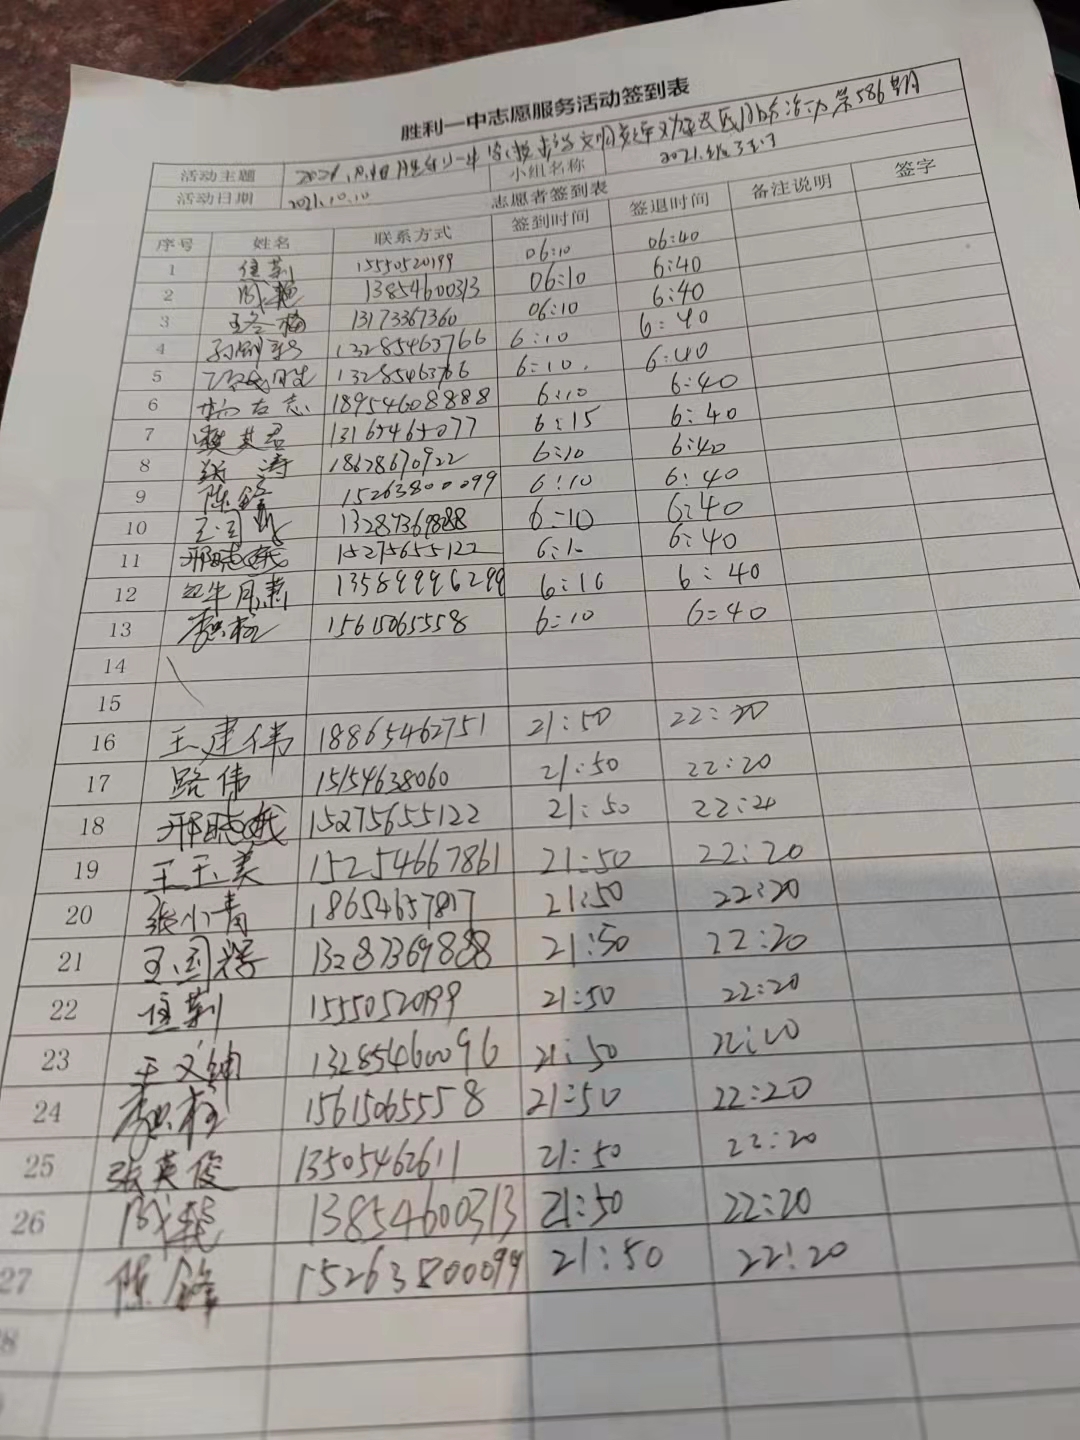 胜利一中志愿服务活动签到表
活动主题 2021.10.10 胜利一中 活动第586期
活动日期 2021.10.10 小组名称 2021级
志愿者签到表
序号 姓名 联系方式 签到时间 签退时间 备注说明 签字
1 15550520199 06:10 06:40
2 13854600313 06:10 6:40
3 王冬梅 13173367360 06:10 6:40
4 13285463766 6:10 6:40
5 13285463766 6:10 6:40
6 18954608888 6:10 6:40
7 13165465077 6:15 6:40
8 张涛 18628670922 6:10 6:40
9 陈锋 15263800099 6:10 6:40
10 王国 13287369888 6:10 6:40
11 邢晓娥 15275655122 6:1 6:40
12 13589996299 6:10 6:40
13 15615065558 6:10 6:40
14
15
16 王建伟 18865462751 21:50 22:20
17 路伟 15154638060 21:50 22:20
18 邢晓娥 15275655122 21:50 22:20
19 王玉美 15254667861 21:50 22:20
20 张小青 18654657817 21:50 22:20
21 王国辉 13287369888 21:50 22:20
22 1555052099 21:50 22:20
23 王文 13285460096 21:50 22:20
24 15615065558 21:50 22:20
25 张英俊 13505462611 21:50 22:20
26 13854600313 21:50 22:20
27 陈锋 15263800099 21:50 22:20